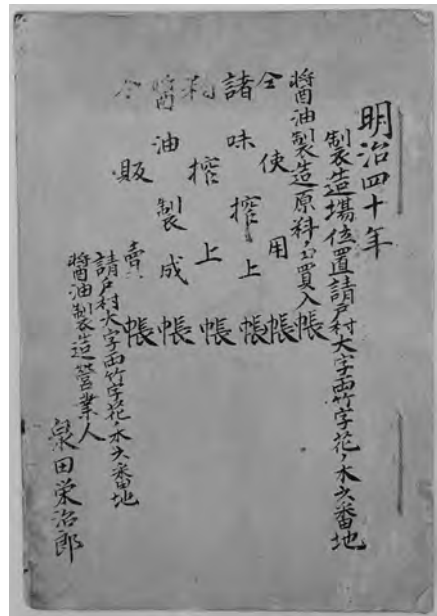 明治四十年
製造場位置請戸村大字両竹字花ノ木六番地
醤油製造原料ノ買入帳
仝使用帳
諸味搾上帳
粕搾上帳
醤油製成帳
仝販賣帳
請戸村大字両竹字花ノ木六番地
醤油製造営業人
泉田栄治郎